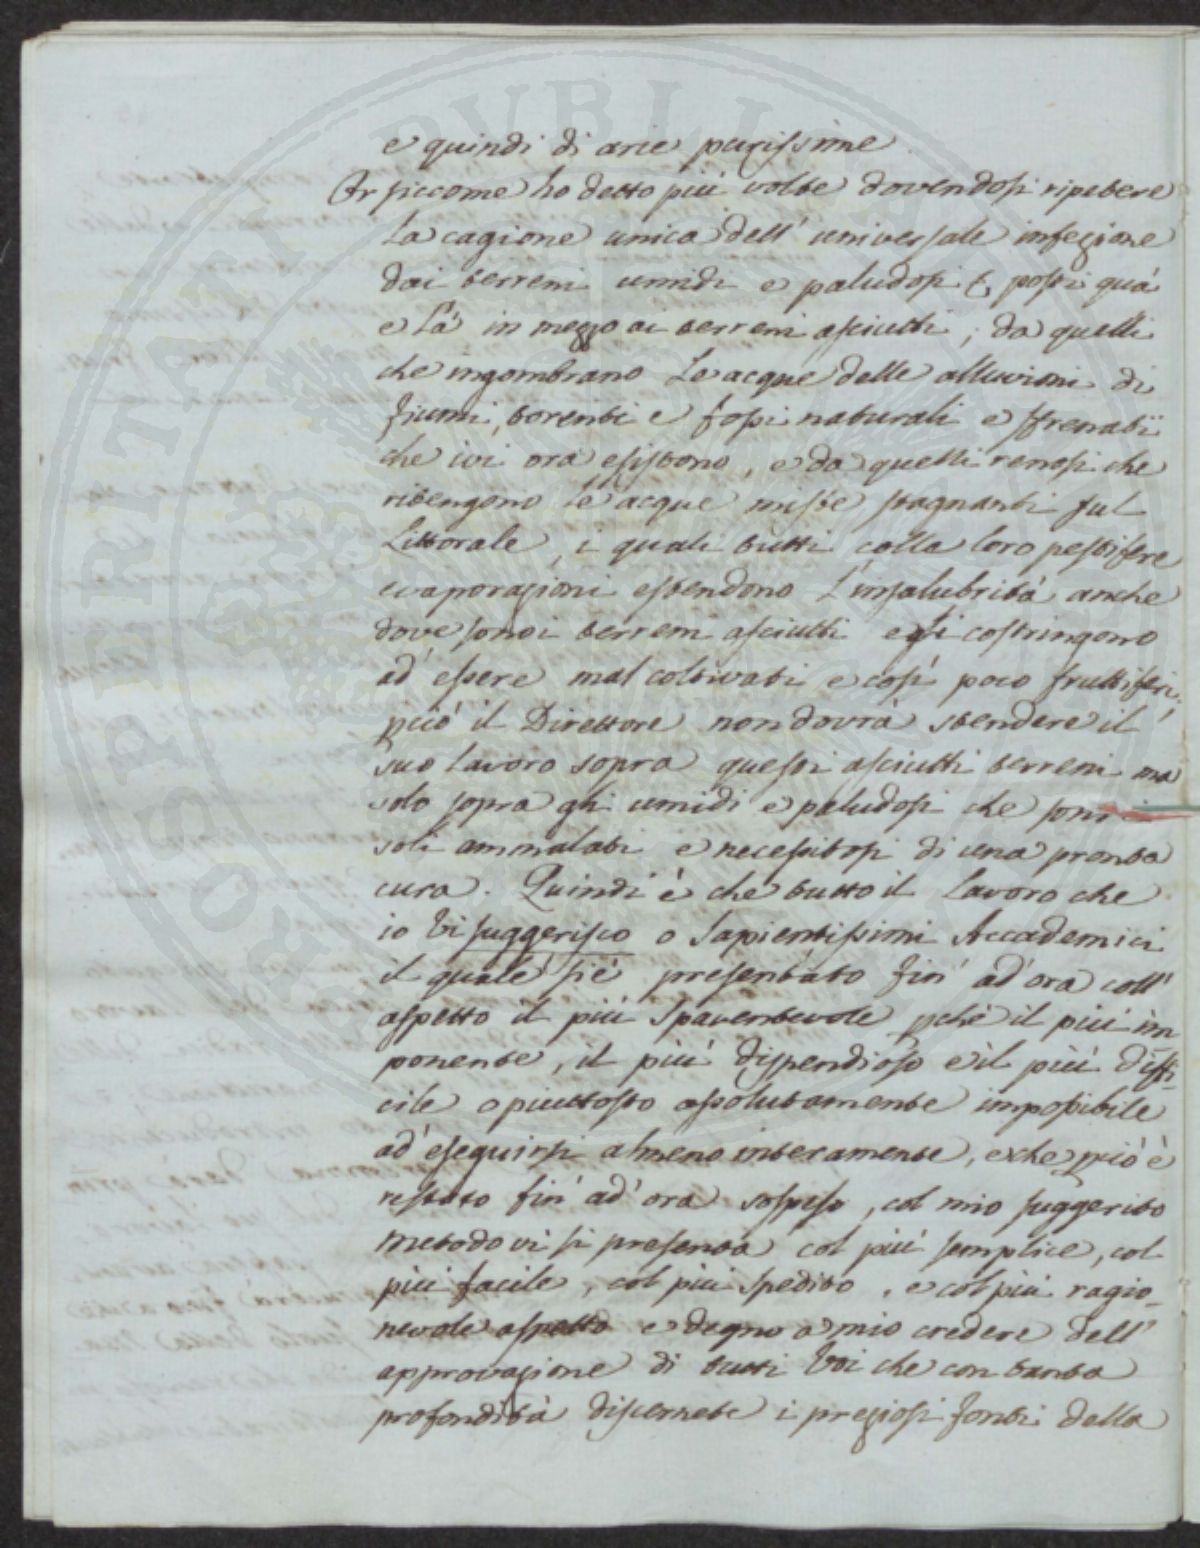 e quindi di arie purissime
Or siccome ho detto più volte dovendosi ripetere
la cagione unica dell' universale infezione
dai terreni umidi e paludosi posti quà
e là in mezzo ai terreni asciutti, da quelli
che ingombrano le acque delle alluvioni di
fiumi, torenti e fossi naturali e sfrenati
che ivi ora esistono, e da quelli renosi che
ritengono le acque miste stagnanti sul
Littorale, i quali tutti colla loro pestifere
evaporazioni estendono l'insalubrità anche
dove sono i terreni asciutti e gli costringono
ad' essere mal coltivati e così poco fruttiferi,
pciò il Direttore non dovrà stendere il
suo lavoro sopra questi asciutti terreni ma
solo sopra gli umidi e paludosi che sono i
soli ammalati e necessitosi di una pronta
cura. Quindi è che tutto il lavoro che
io Vi suggerisco o Sapientissimi Accademici
il quale si è presentato fin' ad' ora coll'
aspetto il più spaventevole pchè il più im
ponente, il più dispendioso e il più diffi-
cile o piuttosto assolutamente impossibile
ad' eseguirsi almeno interamente, e che pciò è
restato fin' ad' ora sospeso, col mio suggerito
metodo vi si presenta col più semplice, col
più facile, col più spedito, e col più ragio-
nevole aspetto e degno a mio credere dell'
approvazione di tutti Voi che con tanta
profondità discernete i preziosi fonti della
PROSPERITATI PVBLICAE